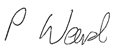 P Ward